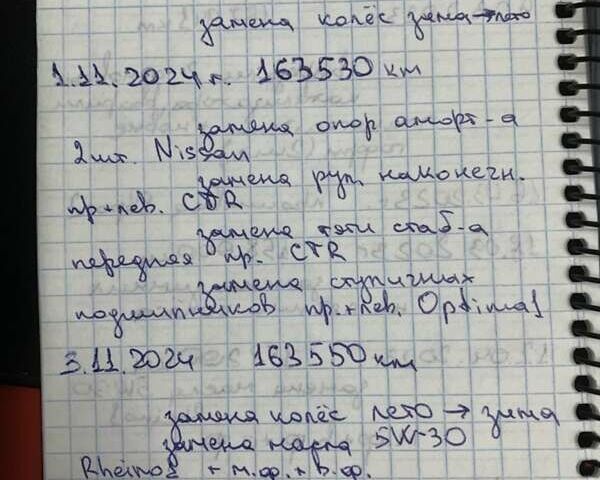 замена колёс зима→лето
1.11.2024 г. 163530 км
замена опор аморт-а
2 шт. Nissan
замена рул. наконечн.
пр+лев. CTR
замена тяги стаб-а
передняя пр. CTR
замена ступичных
подшипников пр.+лев. Optimal
3.11.2024 163550 км
замена колёс лето → зима
замена масла 5W-30
+ м.ф. + в.ф.